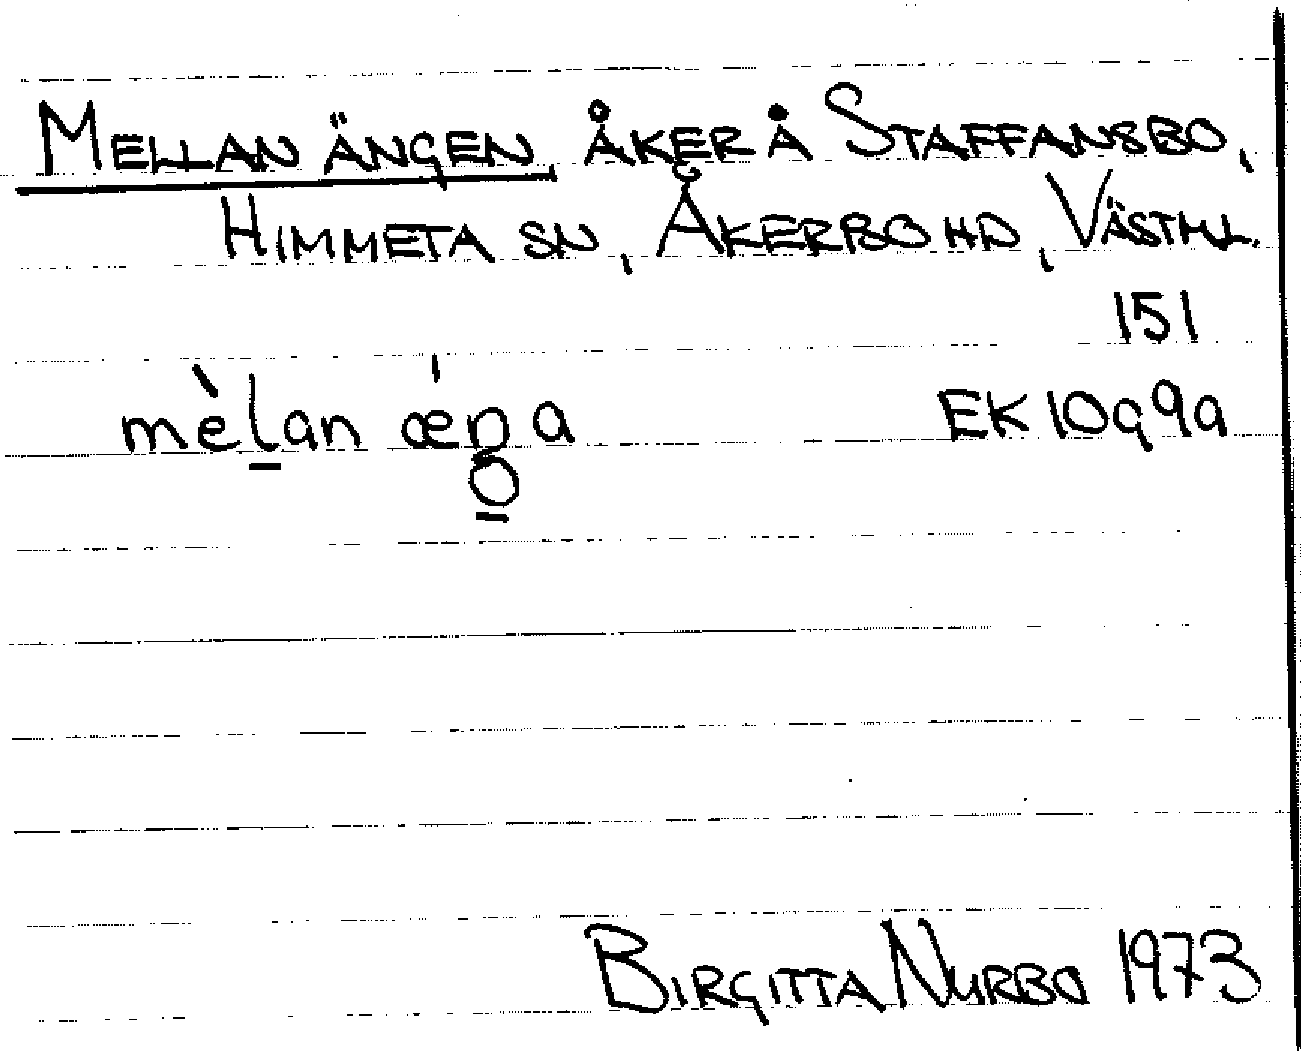 MELLANÄNGEN, ÅKER Å STAFFANSBO,
HIMMETA SN, ÅKERBO HD, VÄSTML.
151
mèlan æŋa EK 10g9a
BIRGITTA NYRBO 1973